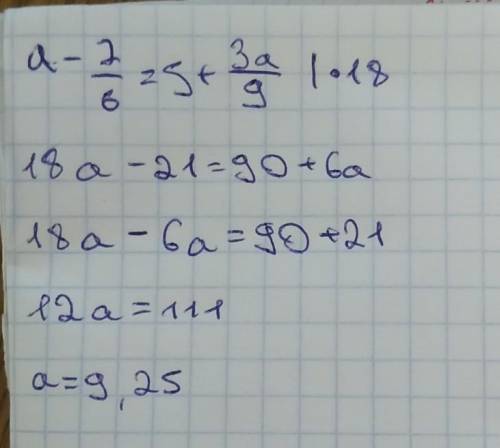 a - 7/6 = 5 + 3a/9 | · 18
18a - 21 = 90 + 6a
18a - 6a = 90 + 21
12a = 111
a = 9,25